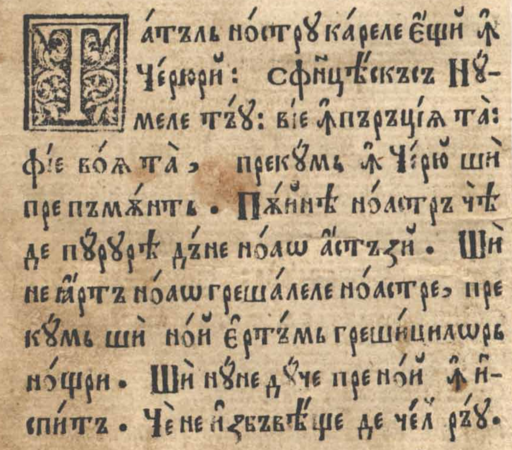 Та́тъль но́стрꙋ ка́реле є҆́щй ꙟ҆
Че́рюрй : сфн҃цѣ́скъсъ Нꙋ́-
меле тъ́ꙋ : ві́е ꙟ҆пъръці́ѧ та̀ :
фі́е во́ѧ та̀ , прекꙋ́мь ꙟ҆ Че́рю̆ шѝ
пре пъмѫ́нть . Пѫ́йнѣ ноа́стръ чѣ̀
де пꙋ́рꙋрѣ дъ́не но́аѡ а҆́стъзй . Шѝ
не ꙗ҆́ртъ но́аѡ греша́леле ноа́стре , пре
кꙋ́мь шѝ но́й є҆ртъ́мь греши́цилѡрь
но́щри . Шѝ нꙋ́не дꙋ́че пре но́й ꙟ҆ и҆-
спи́тъ . Чѐ не и҆збъвѣ́ще де че́л̾ ръ́ꙋ .